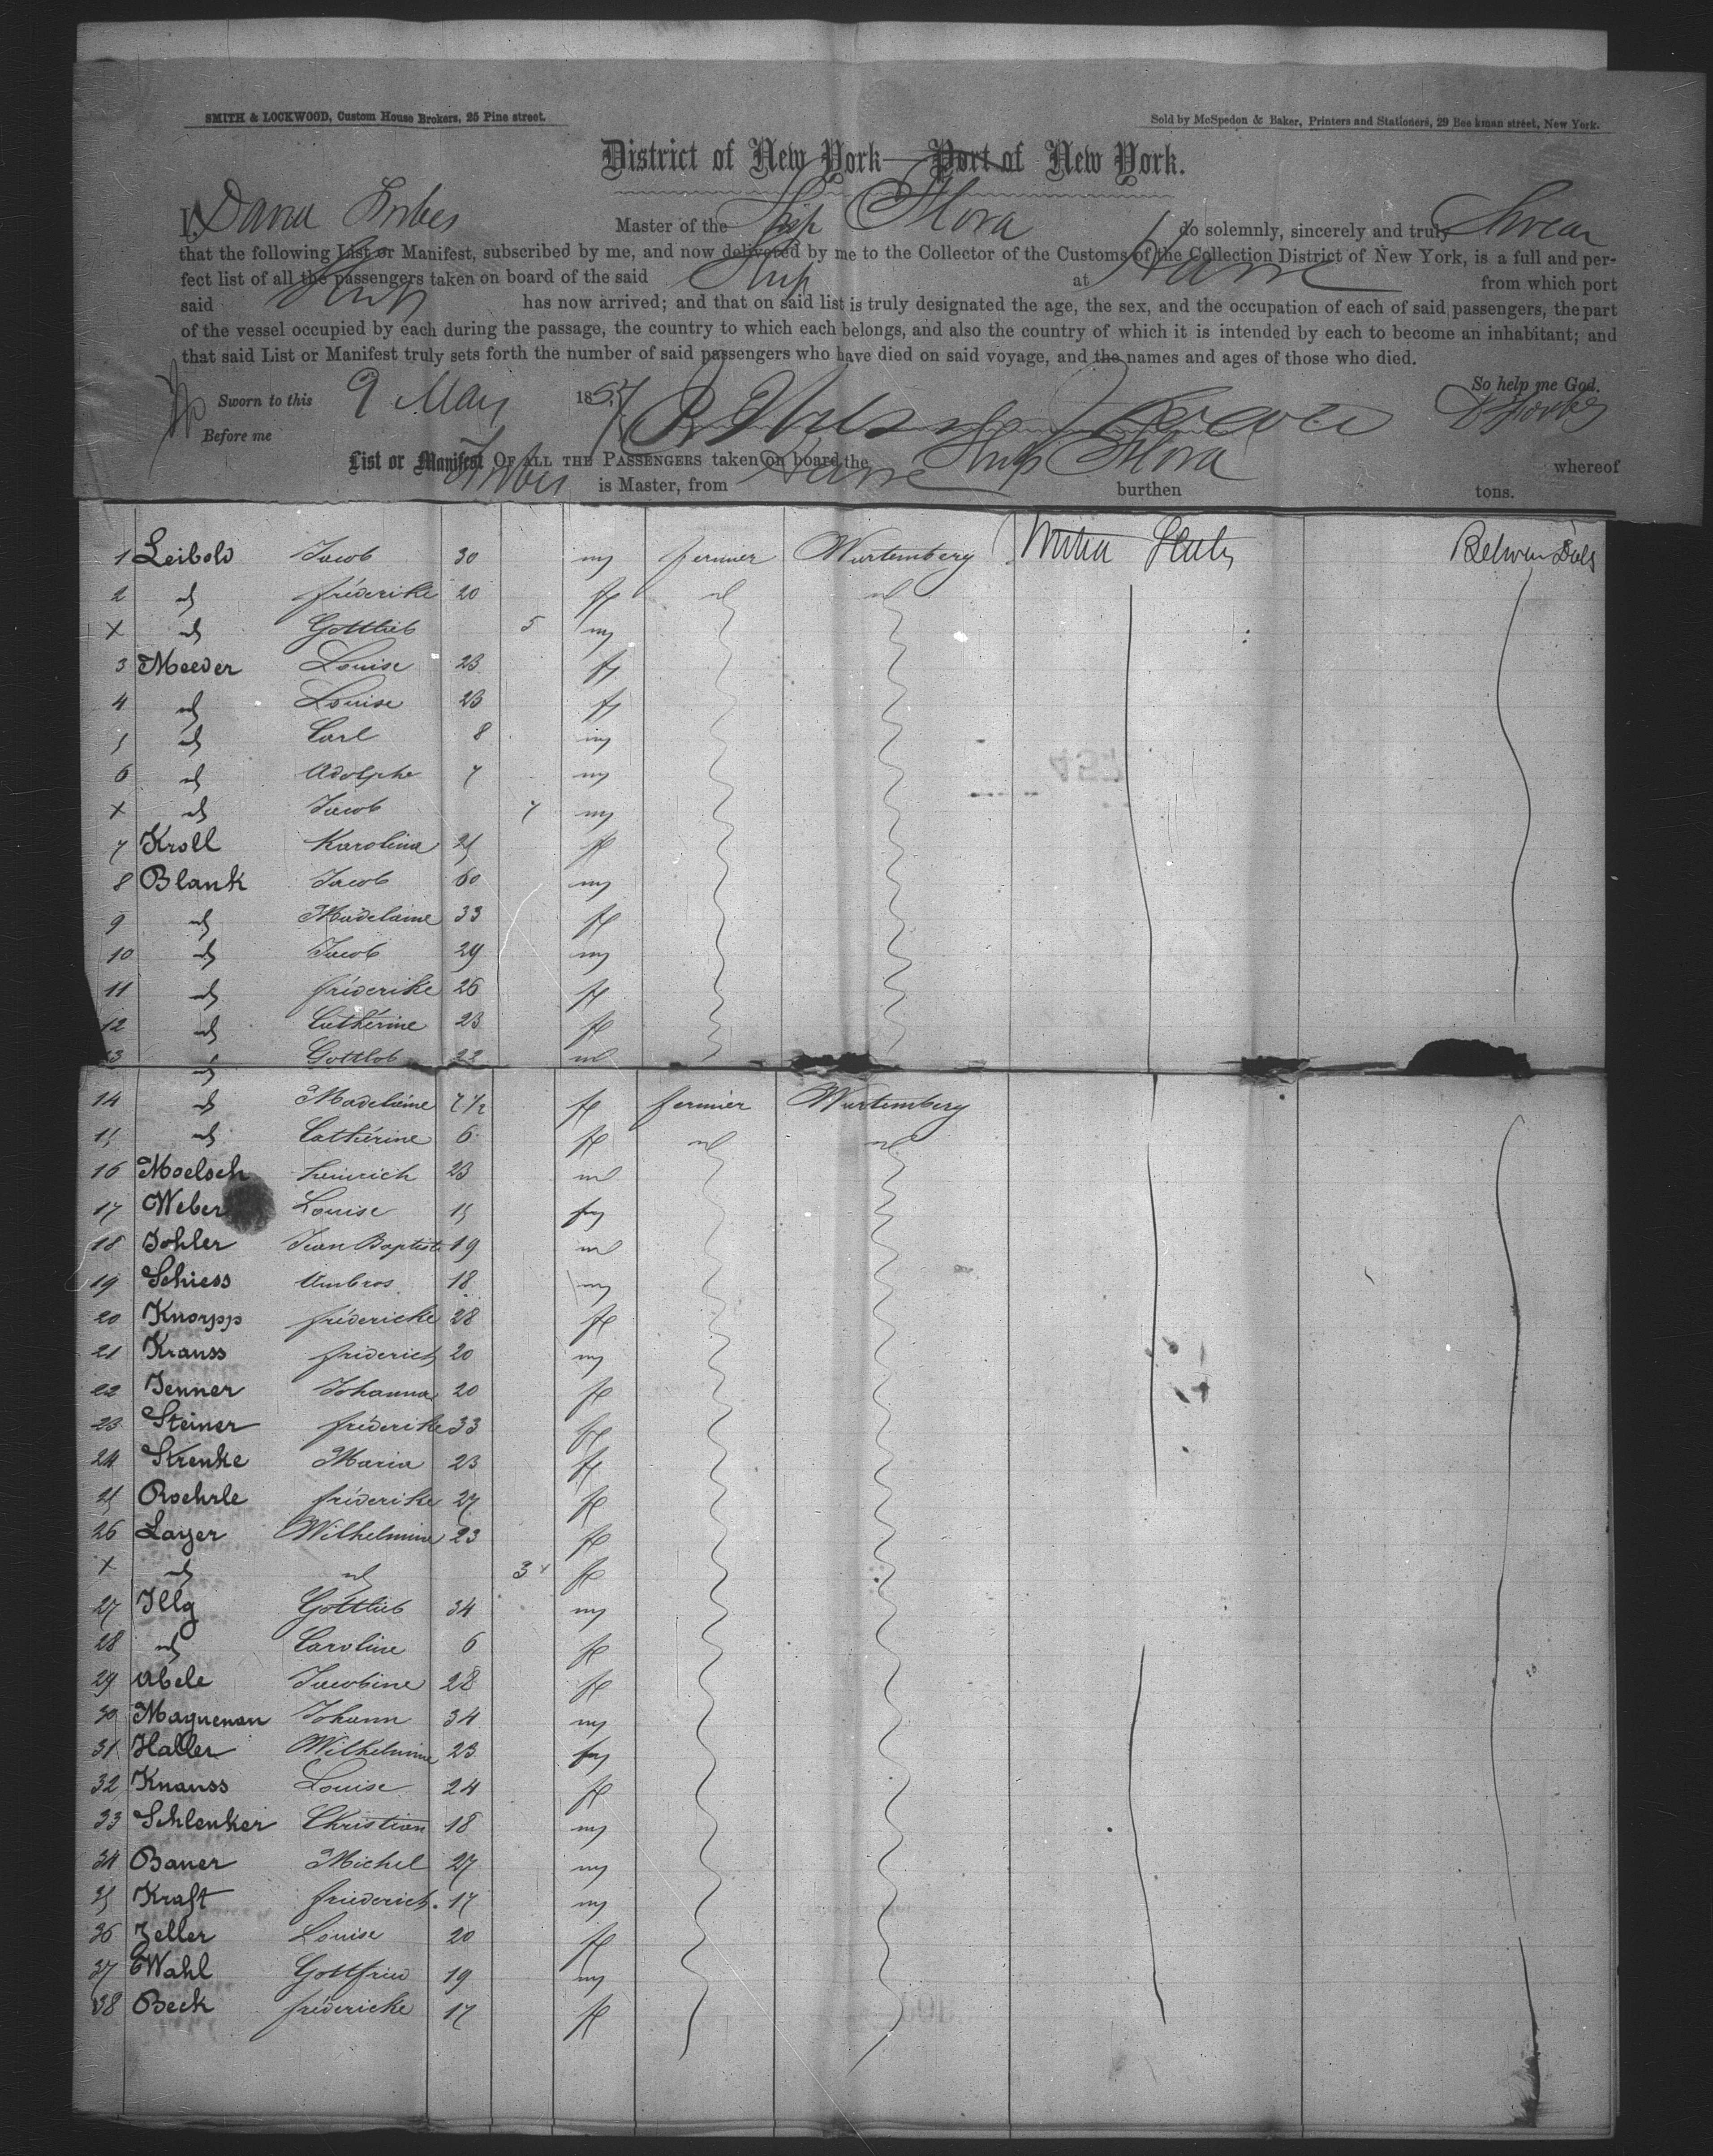 SMITH & LOCKWOOD, Custom House Brokers, 25 Pine street. Sold by McSpedon & Baker, Printers and Stationers, 29 Beekman street, New York.
District of New York—Port of New York.
I, Forbes Master of the Ship Flora do solemnly, sincerely and truly Swear
that the following List or Manifest, subscribed by me, and now delivered by me to the Collector of the Customs of the Collection District of New York, is a full and per-
fect list of all the passengers taken on board of the said Ship at Havre from which port
said Ship has now arrived; and that on said list is truly designated the age, the sex, and the occupation of each of said passengers, the part
of the vessel occupied by each during the passage, the country to which each belongs, and also the country of which it is intended by each to become an inhabitant; and
that said List or Manifest truly sets forth the number of said passengers who have died on said voyage, and the names and ages of those who died.
So help me God.
Sworn to this 9 May 1857 D Forbes
Before me
List or Manifest OF ALL THE PASSENGERS taken on board the Ship Flora whereof
Forbes is Master, from Havre burthen tons.
1 Leibold Jacob 30 m fermier Wurtemberg United States Between Decks
2 d fréderike 20 f d d
X d Gottlieb 5 m
3 Meeder Louise 23 f
4 d Louise 23 f
5 d Carl 8 m
6 d Adolphe 7 m
X d Jacob 7 m
7 Kroll Karolina 25 f
8 Blank Jacob 60 m
9 d Madelaine 33 f
10 d Jacob 29 m
11 d fréderike 26 f
12 d Cathérine 23 f
13 d Gottlob 22 m
14 d Madelaine 7 1/2 f fermier Wurtemberg
15 d Cathérine 6 f d d
16 Moelsch heinrich 23 m
17 Weber Louise 15 f
18 Johler Jean Baptiste 19 m
19 Schiess Ambros 18 m
20 Knorpp frédericke 28 f
21 Krauss friderich 20 m
22 Jenner Johanna 20 f
23 Steiner fréderike 33 f
24 Strenke Maria 23 f
25 Roehrle fréderike 27 f
26 Layer Wilhelmine 23 f
X d d 3 f
27 Illg Gottlieb 34 m
28 d Caroline 6 f
29 Abele Jacobine 28 f
30 Maquenan Johann 34 m
31 Haller Wilhelmine 23 f
32 Knauss Louise 24 f
33 Schlenker Christian 18 m
34 Bauer Michel 27 m
35 Kraft friederich 17 m
36 Zeller Louise 20 f
37 Wahl Gottfried 19 m
38 Beck frédericke 17 f